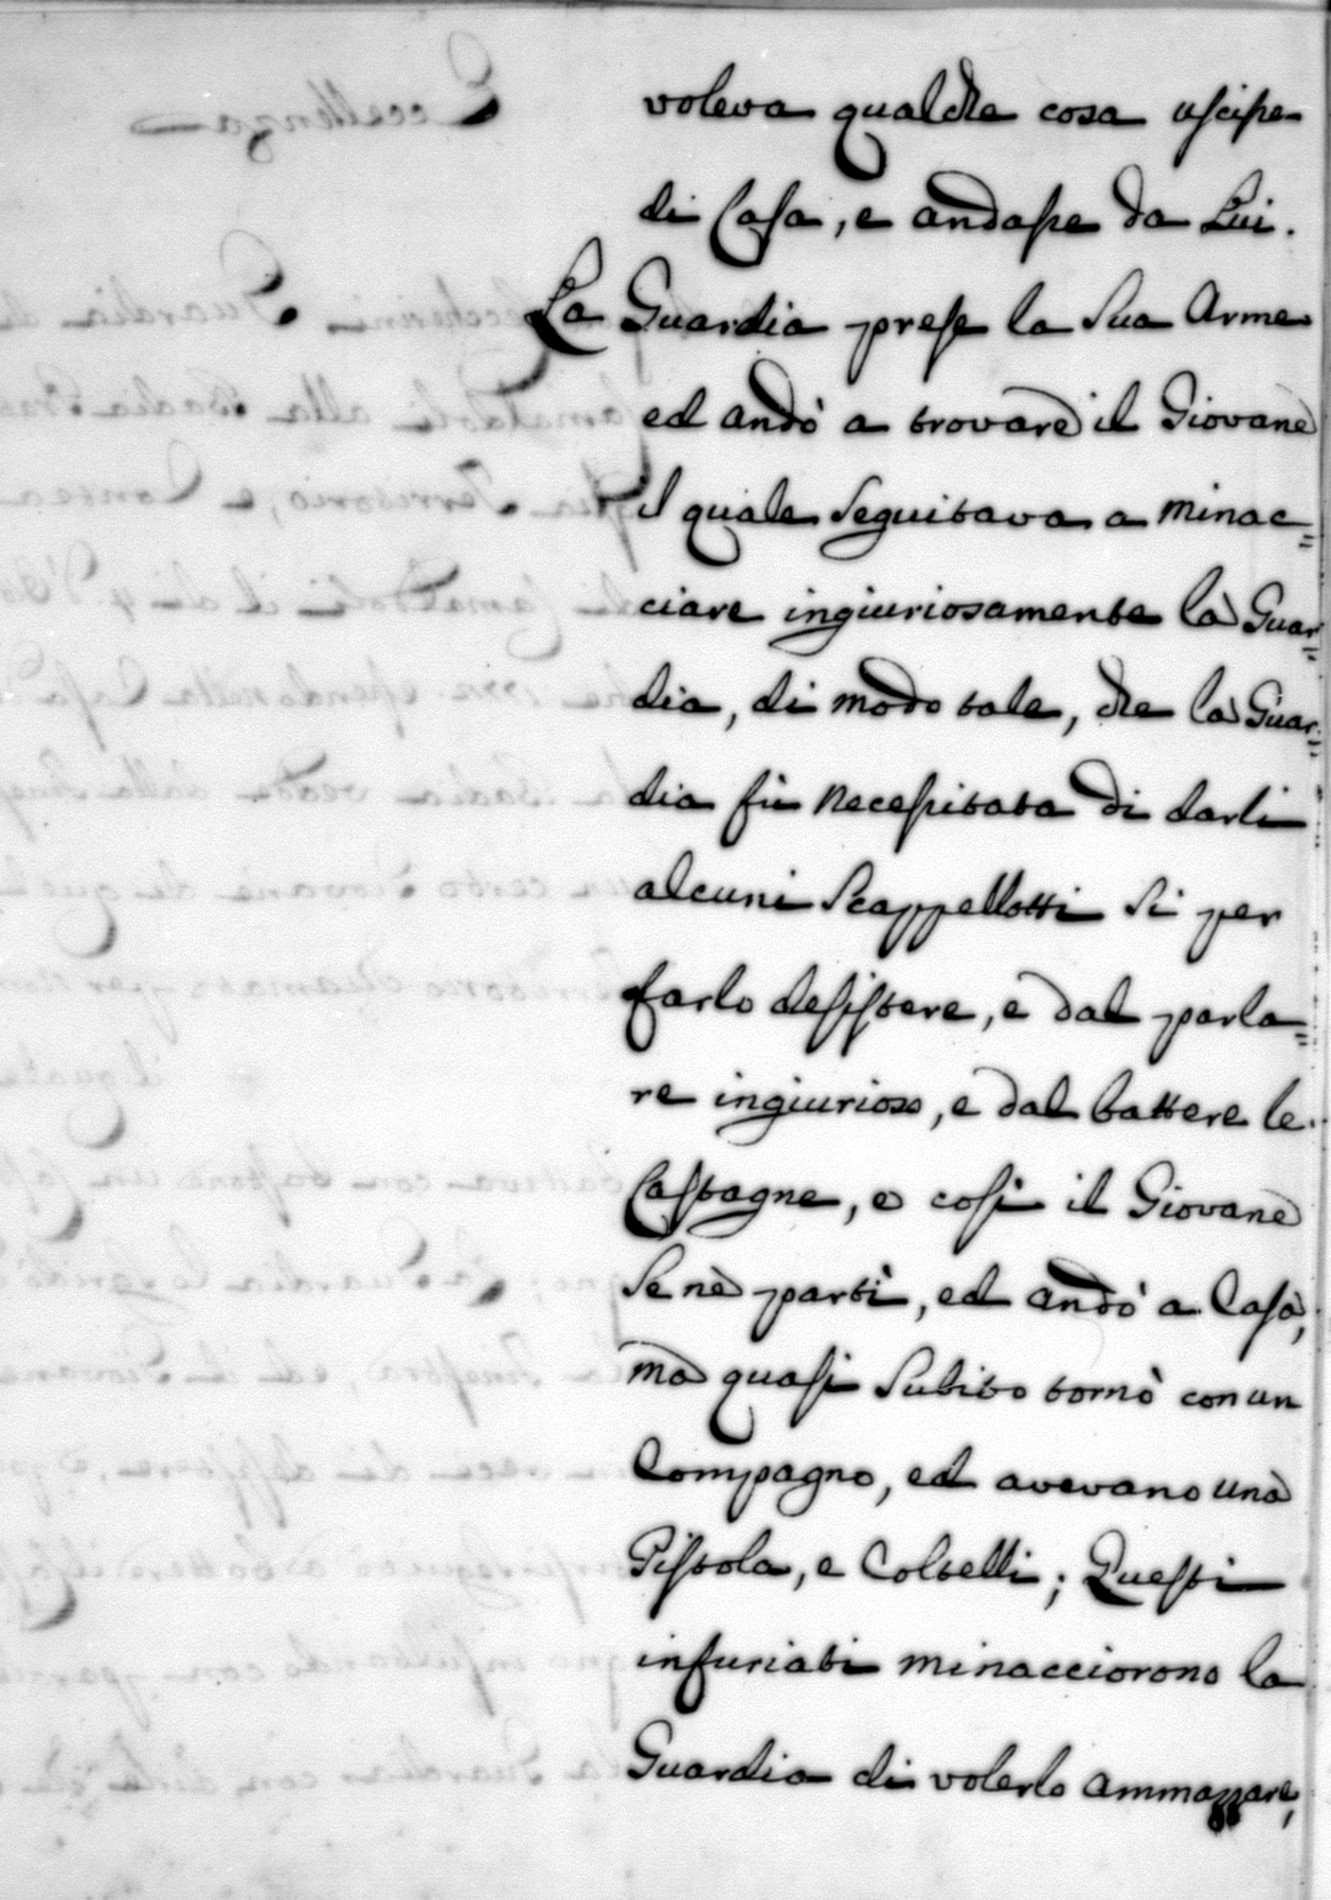 voleva qualche cosa uscisse
di Casa, e andasse da Lui.
La Guardia prese la Sua Arme
ed andò a trovare il Giovane
il quale Seguitava a minac=
ciare ingiuriosamente la Guar=
dia, di modo tale, che la Guar=
dia fù necessitata di darli
alcuni Scappellotti Si per
farlo desistere, e dal parla=
re ingiurioso, e dal battere le
Castagne, e così il Giovane
Se nè partì, ed andò a Casa,
ma quasi Subito tornò con un
Compagno, ed avevano una
Pistola, e Coltelli; Questi
infuriati minacciorono la
Guardia di volerlo ammazzare,